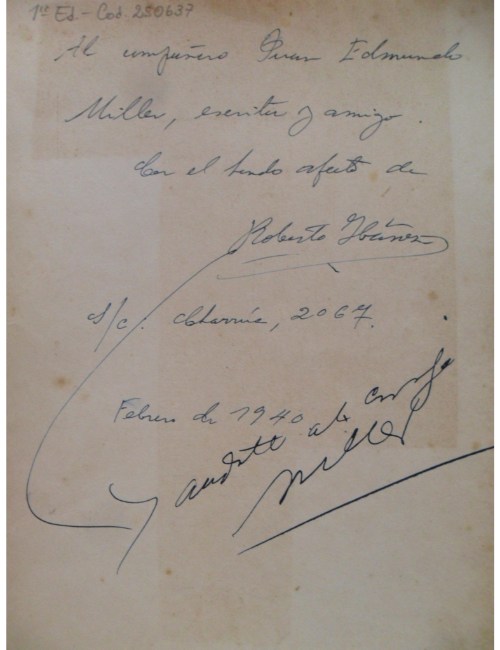 1ª Ed.- Cod. 250637
Al compañero Juan Edmundo
Miller, escritor y amigo.
Con el hondo afecto de
Roberto Ibáñez
S/c. Charrúa, 2067.
Febrero de 1940
Miller